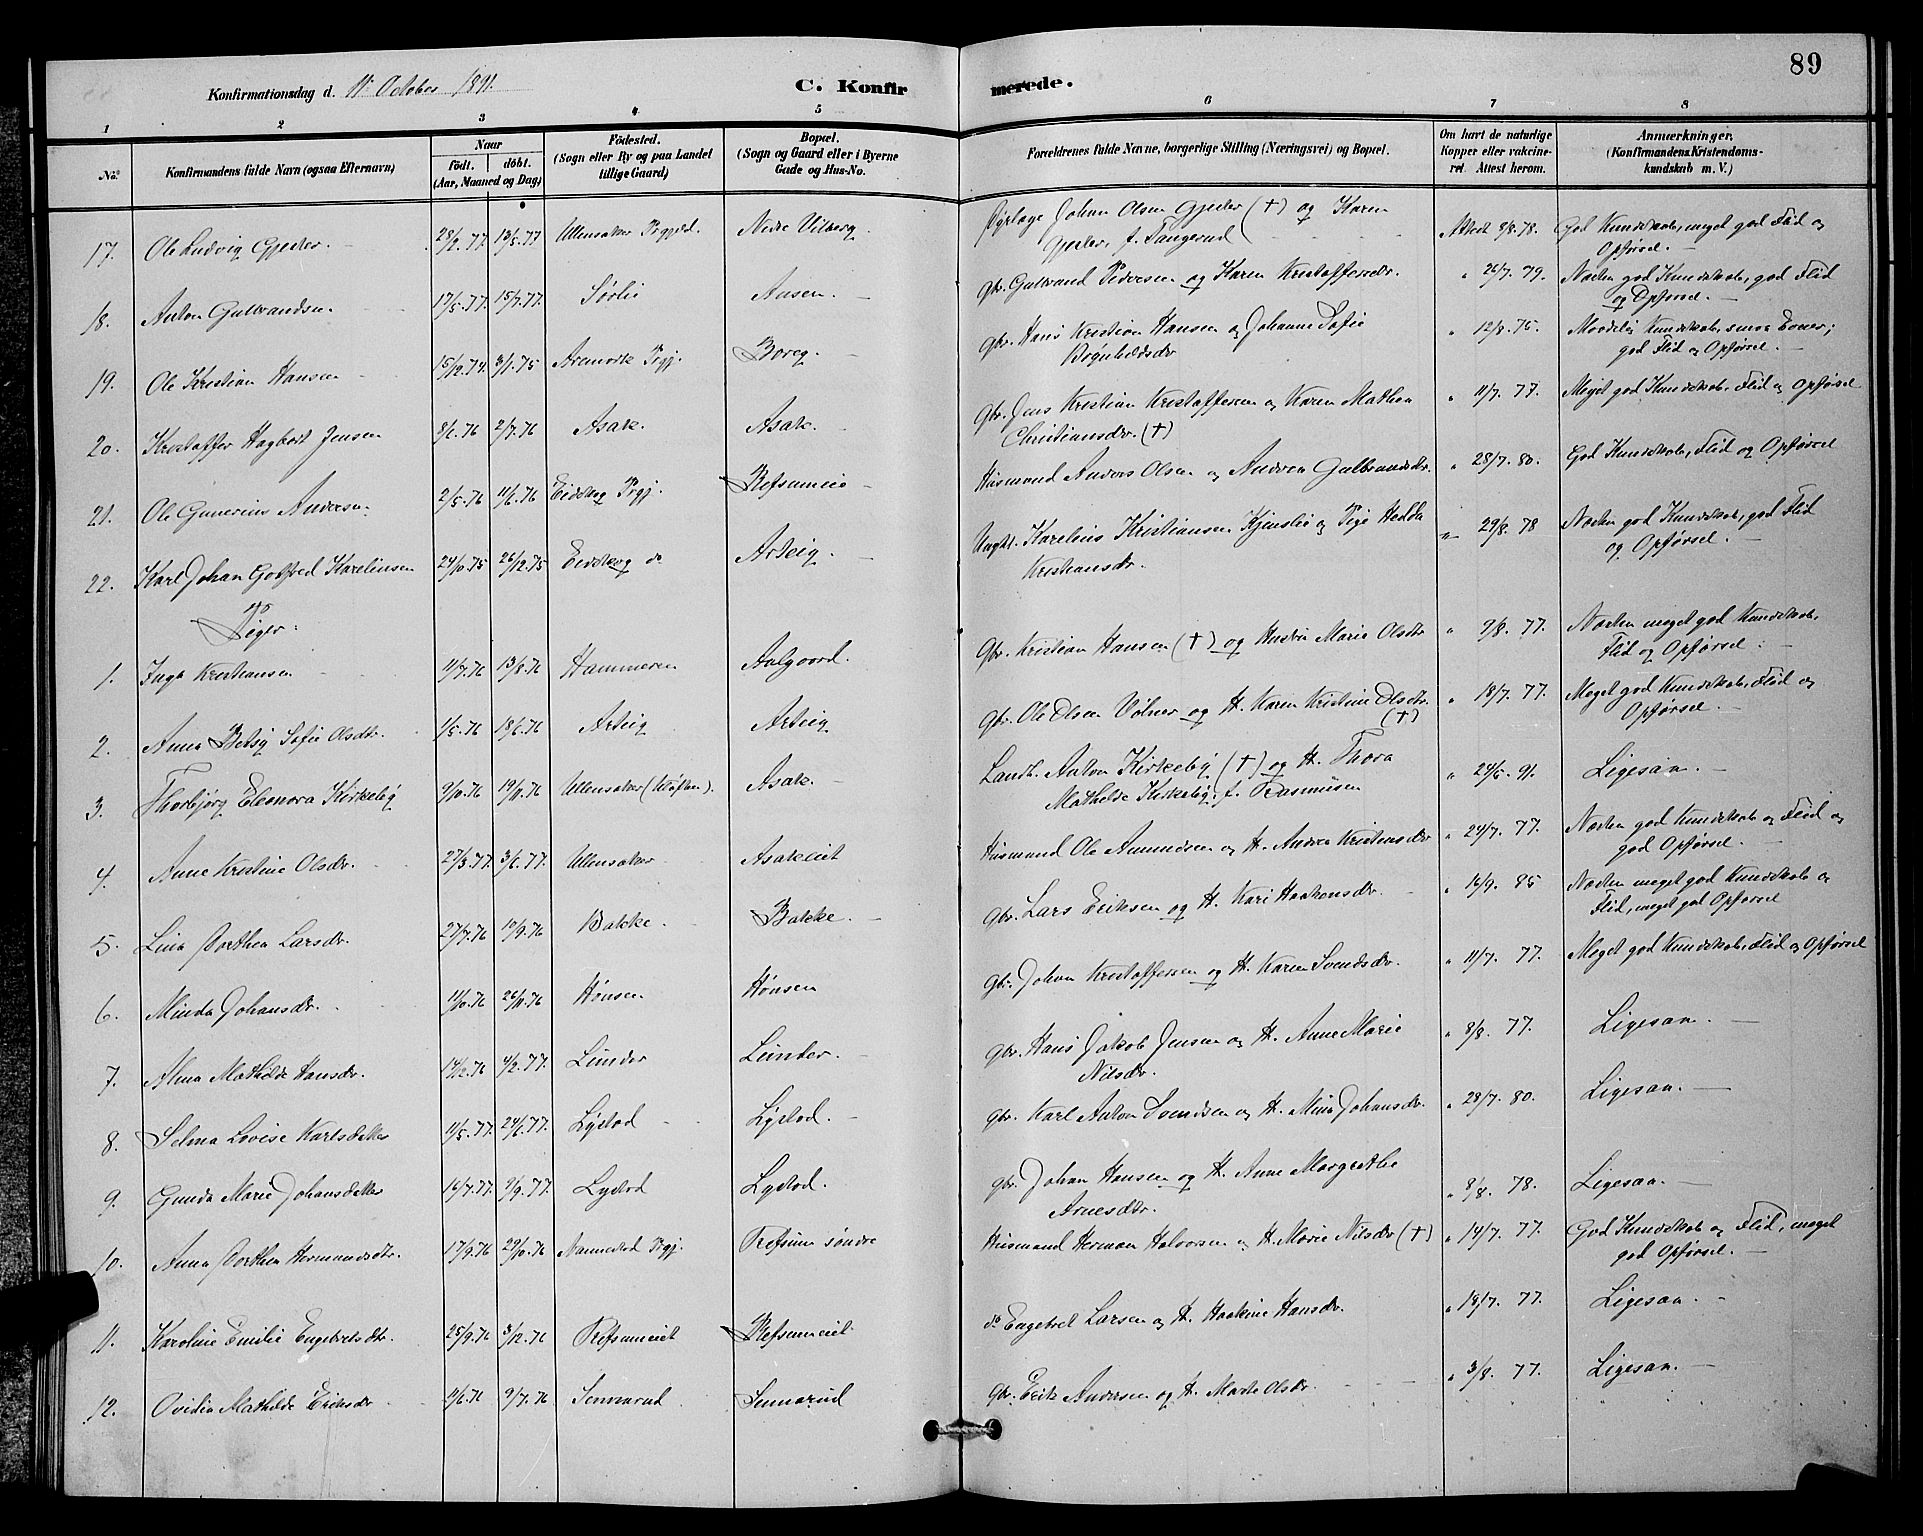 89
Konfirmationsdag d. 11 October 1891.
C. Konfirmerede.
1 2 3 4 5 6 7 8
No. Konfirmandens fulde Navn (ogsaa Efternavn) Naar födt. döbt. (Aar, Maaned og Dag) Födested. (Sogn eller By og paa Landet tillige Gaard) Bopæl. (Sogn og Gaard eller i Byerne Gade og Hus-No. Forældrenes fulde Navne, borgerlige Stilling (Næringsvei) og Bopæl. Om havt de naturlige Kopper eller vakcineret. Attest herom. Anmærkninger. (Konfirmandens Kristendomskundskab m. V.)
17. Ole Ludvig Gjester 28/2.77. 13/5.77 Ullensaker Prgjeld. Nedre Vilberg Johan Olsen Gjester (†) og Karen Gjester, f. Tangerud Attest 9/8.78. God Kundskab, meget god Flid og Opførsel.
18. Anton Gulbrandsen 17/5.77. 15/7.77. Sørlie Aasen. Gbr. Gulbrand Pedersen og Karen Kristoffersdr. " 26/7. 79. Næsten god Kundskab, god Flid og Opførsel.
19. Ole Kristian Hansen 15/12.74. 3/1.75 Aremark Prgj. Boreg. Gbr. Hans Kristian Hansen og Johanne Sofie Brynhildsdr " 12/8.75. Maadelig Kundskab, smaa Evner; god Flid og Opførsel.
20. Kristoffer Hagbart Jensen 8/6.76 2/7.76 Asak. Asak. Gbr. Jens Kristian Kristoffersen og Karen Mathea Christiansdr. (†) " 11/7. 77. Meget god Kundskab, Flid og Opførsel
21. Ole Gunerius Andersen. 2/5.76 11/6.76 Eidskog Prgj. Refsumeie Husmand Anders Olsen og Andrea Gulbrandsdr. " 28/7. 80. God Kundskab, Flid og Opførsel
22. Karl Johan Gotfred Karelinsen 24/10.75 26/12.75 Eidskog do Arteig. Ungk. Karelius Kristiansen Kjinslie og Pige Hedda Kristiansdr. " 29/8. 78 Næsten god Kundskab, god Flid og Opførsel.
Piger:
1. Inga Kristiansen 11/7.76 13/8.76 Hammeren Aalgaard. Gbr. Kristian Hansen (†) og Hustru Marie Olsdtr " 9/8. 77. Næsten meget god Kundskab, Flid og Opførsel.
2. Anna Betsy Sofie Olsdtr. 1/5.76 18/6.76 Arteig Arteig Gbr. Ole Olsen Volner og H. Karen Kristine Olsdtr. (†) " 18/7. 77. Meget god Kundskab, Flid og Opførsel.
3. Thorbjørg Eleonora Kirkeby 9/10.76 19/11.76 Ullensaker (Kløften). Asak. Landh. Anton Kirkeby (†) og H. Thora Mathilde Kirkeby, f. Rasmusen " 24/5.91. Ligesaa.
4. Anne Kristine Olsdr. 27/3.77. 3/6.77. Ullensaker Asakeiet Husmand Ole Amundsen og H. Andrea Kristensdr " 24/7. 77. Næsten god Kundskab og Flid og god Opførsel.
5. Lina Dorthea Larsdr. 27/7.76 10/9.76 Bakke. Bakke. Gbr. Lars Eriksen og H. Kari Haakensdr. " 16/9. 85 Næsten meget god Kundskab og Flid, meget god Opførsel
6. Minda Johansdr. 11/10.76 26/11.76 Hønsen Hønsen Gbr. Johan Kristoffersen og H. Karen Svendsdr. " 11/7. 77. Meget god Kundskab, Flid og Opførsel
7. Alma Mathilde Hansdr. 14/12.76 4/2.77. Linder Linder. Gbr. Hans Jakob Jensen og H. Anne Marie Nilsdr. " 8/8. 77. Ligesaa.
8. Selma Lovise Karlsdatter 11/5.77. 24/6.77. Lystad Lystad. Gbr. Karl Anton Svendsen og H. Mina Johansdr. " 28/7. 80. Ligesaa.
9. Gunda Marie Johansdatter 16/7.77. 9/9.77. Lystad Lystad. Gbr. Johan Hansen og H. Anne Margrethe Arnesdtr. " 8/8. 78. Ligesaa.
10. Anna Dorthea Hermansdtr. 17/9.76 29/10.76 Nannestad Prgj. Refsum søndre Husmand Herman Halvorsen og H. Marie Nilsdr (†) " 14/7. 77. God Kundskab og Flid, meget god Opførsel.
11. Karoline Emilie Engebretsdtr. 25/9.76 3/12.76 Refsumeiet Refsumeiet. do Engebret Larsen og H. Haakine Hansdr. " 18/7. 77. Ligesaa.
12. Ovidia Mathilde Eriksdr 11/6.76 9/7.76 Sennerud Sennerud Gbr. Erik Andersen og H. Marte Olsdr. " 3/8. 77. Ligesaa.